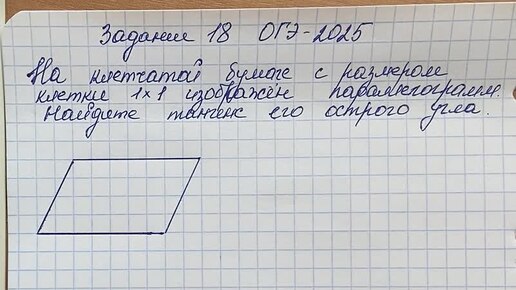 Задание 18 ОГЭ-2025
На клетчатой бумаге с размером
клетки 1×1 изображён параллелограмм.
Найдите тангенс его острого угла.